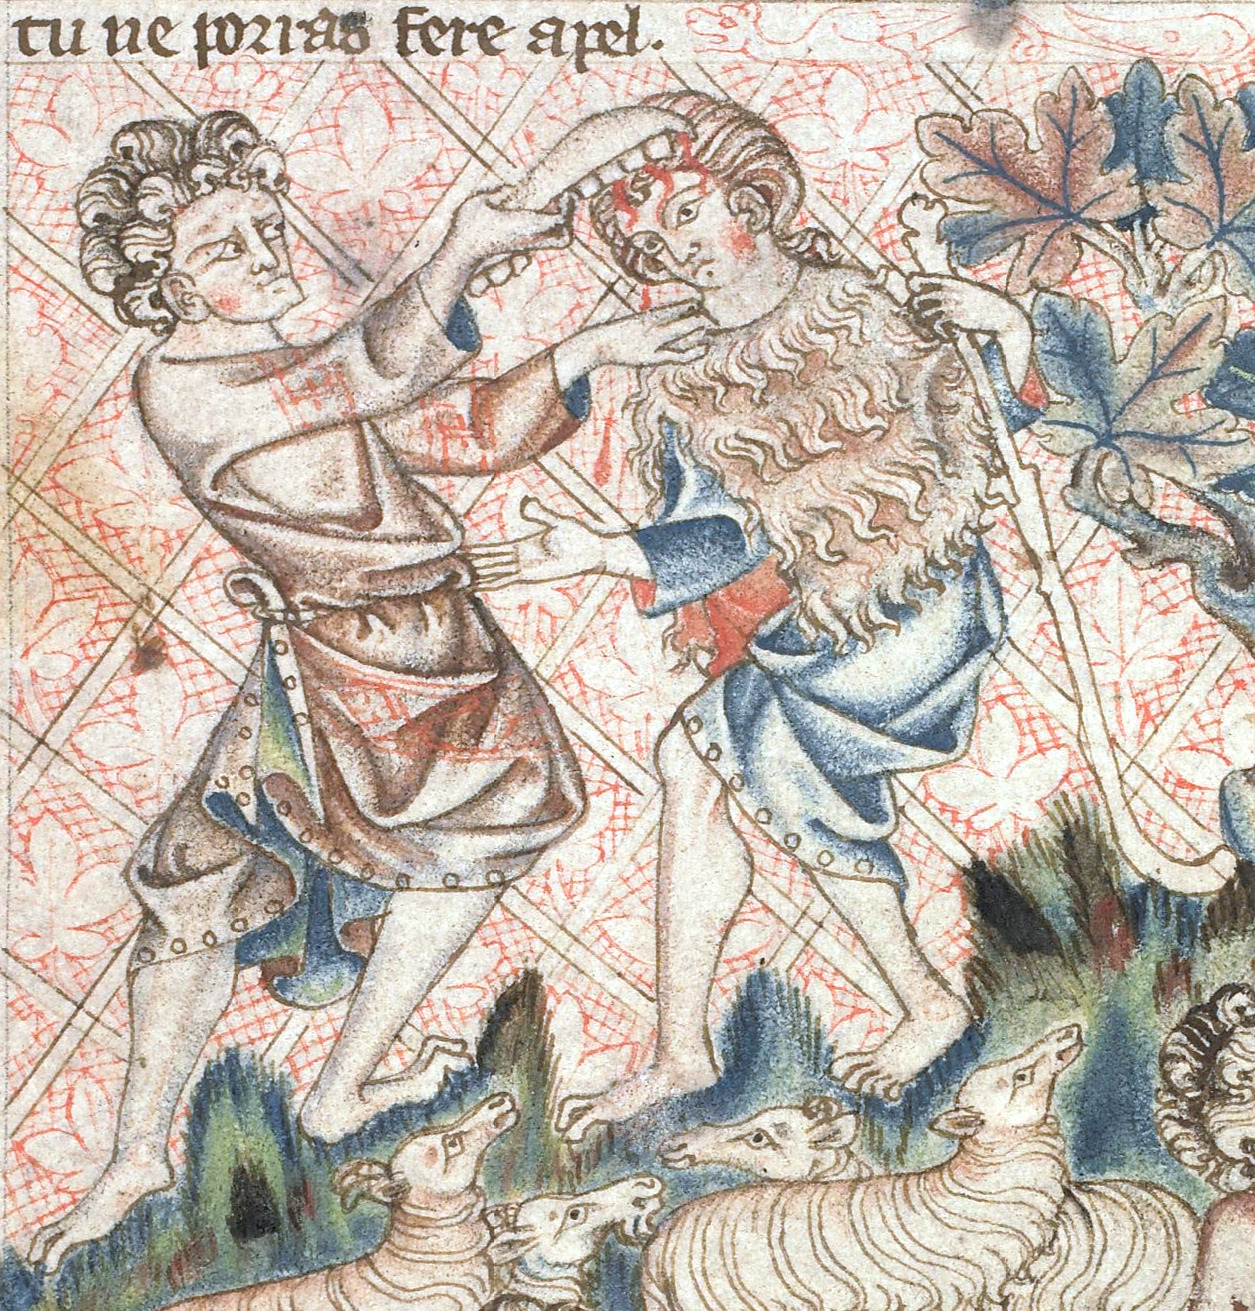 tu ne porias fere apel.